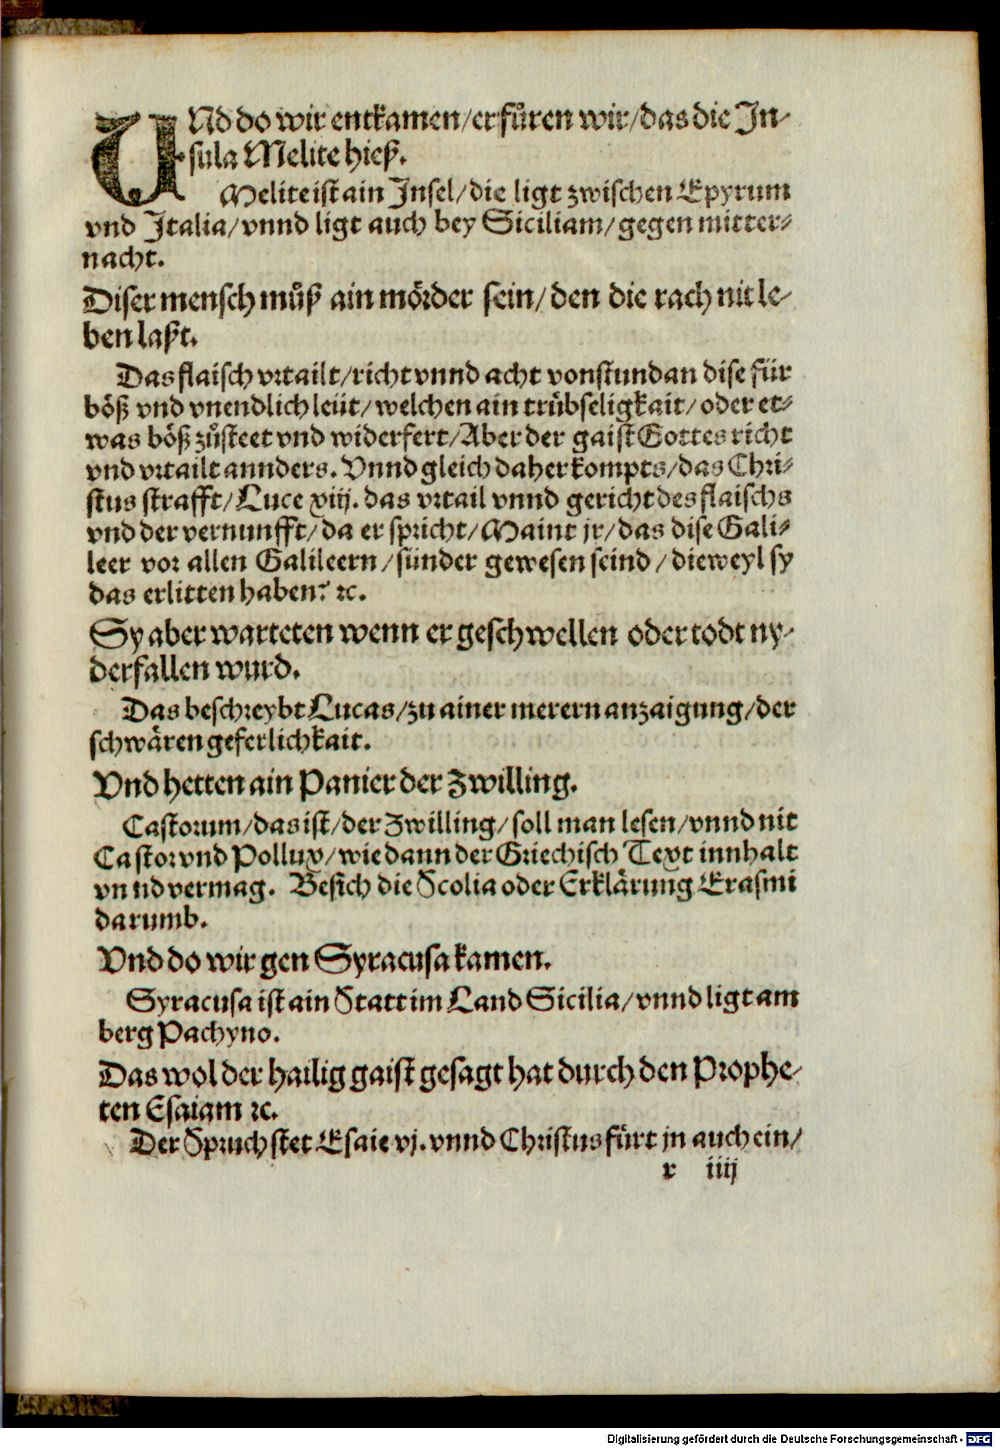 UNd do wir entkamen/erfůren wir/das die In-
sula Melite hieß.
Melite ist ain Insel/die ligt zwischen Epyrum
vnd Italia/vnnd ligt auch bey Siciliam/gegen mitter-
nacht.
Diser mensch můß ain mörder sein/den die rach nit le-
ben laßt.
Das flaisch vrtailt/richt vnnd acht vonstundan dise für
böß vnd vnendlich leüt/welchen ain trübseligkait/oder et-
was böß zůsteet vnd widerfert/Aber der gaist Gottes richt
vnd vrtailt annders. Vnnd gleich daher kompts/das Chri-
stus strafft/Luce xiij. das vrtail vnnd gericht des flaischs
vnd der vernunfft/da er spricht/Maint jr/das dise Gali-
leer vor allen Galileern/sünder gewesen seind/dieweyl sy
das erlitten haben? ꝛc.
Sy aber warteten wenn er geschwellen oder todt ny-
derfallen wurd.
Das beschreybt Lucas/zu ainer merern anzaigung/der
schwären geferlichkait.
Vnd hetten ain Panier der Zwilling.
Castorum/das ist/der Zwilling/soll man lesen/vnnd nit
Castor vnd Pollux/wie dann der Griechisch Text innhalt
vnnd vermag. Besich die Scolia oder Erklärung Erasmi
darumb.
Vnd do wir gen Syracusa kamen.
Syracusa ist ain Statt im Land Sicilia/vnnd ligt am
berg Pachyno.
Das wol der hailig gaist gesagt hat durch den Prophe-
ten Esaiam ꝛc.
Der Spruch stet Esaie vj. vnnd Christus fürt jn auch ein/
r iiij
Digitalisierung gefördert durch die Deutsche Forschungsgemeinschaft - DFG